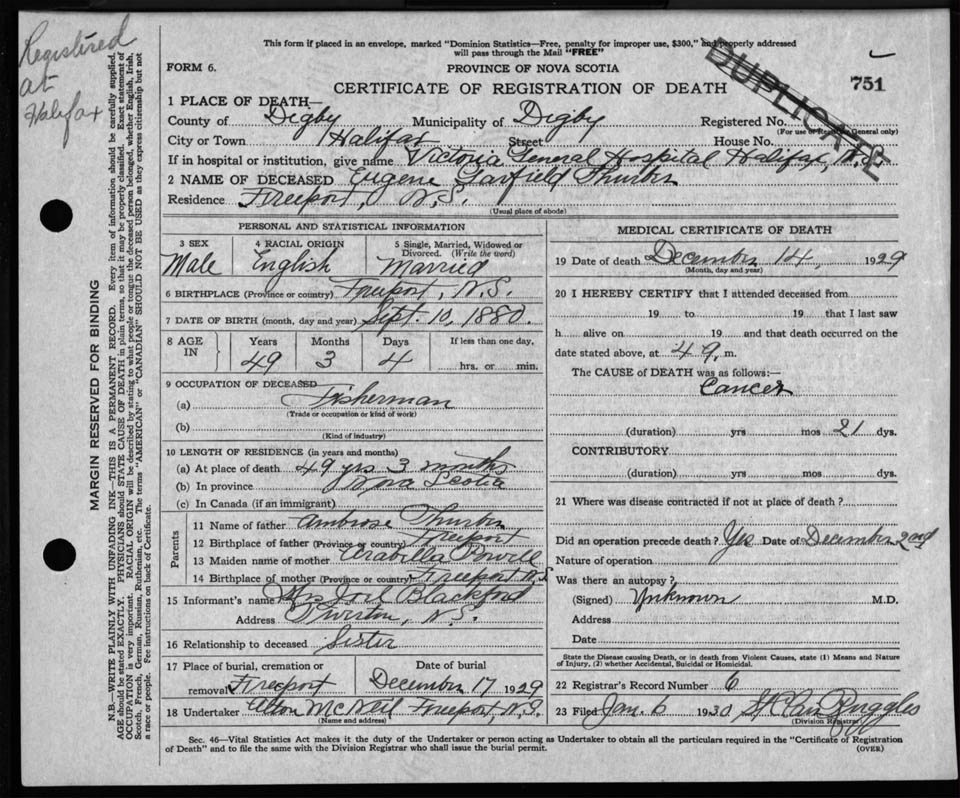 Registered
at
Halifax
MARGIN RESERVED FOR BINDING
N.B.—WRITE PLAINLY WITH UNFADING INK—THIS IS A PERMANENT RECORD. Every item of information should be carefully supplied.
AGE should be stated EXACTLY. PHYSICIANS should STATE CAUSE OF DEATH in plain terms, so that it may be properly classified. Exact statement of
OCCUPATION is very important. RACIAL ORIGIN will be described by stating to what people or tongue the deceased person belonged, whether English, Irish,
Scotch, French, German, Russian, Ruthenian, etc. The terms "AMERICAN" or "CANADIAN" SHOULD NOT BE USED as they express citizenship but not
a race or people. Fee instructions on back of Certificate.
This form if placed in an envelope, marked "Dominion Statistics—Free, penalty for improper use, $300," and properly addressed
will pass through the Mail "FREE"
FORM 6. PROVINCE OF NOVA SCOTIA
DUPLICATE
751
CERTIFICATE OF REGISTRATION OF DEATH
1 PLACE OF DEATH—
County of Digby Municipality of Digby Registered No.
(For use of Registrar General only)
City or Town Halifax Street House No.
If in hospital or institution, give name Victoria General Hospital Halifax, N.S.
2 NAME OF DECEASED Eugene Garfield Thurber
Residence Freeport, N.S.
(Usual place of abode)
PERSONAL AND STATISTICAL INFORMATION
3 SEX 4 RACIAL ORIGIN 5 Single, Married, Widowed or
Divorced. (Write the word)
Male English Married
6 BIRTHPLACE (Province or country) Freeport, N.S.
7 DATE OF BIRTH (month, day and year) Sept. 10, 1880.
8 AGE IN Years Months Days If less than one day,
49 3 4 hrs. or min.
9 OCCUPATION OF DECEASED
(a) Fisherman
(Trade or occupation or kind of work)
(b)
(Kind of industry)
10 LENGTH OF RESIDENCE (in years and months)
(a) At place of death 49 yrs 3 months
(b) In province Nova Scotia
(c) In Canada (if an immigrant)
Parents
11 Name of father Ambrose Thurber
12 Birthplace of father (Province or country) Freeport
13 Maiden name of mother Arabella Powell
14 Birthplace of mother (Province or country) Freeport N.S.
15 Informant's name Mrs Joel Blackford
Address Tiverton, N.S.
16 Relationship to deceased Sister
17 Place of burial, cremation or Date of burial
removal Freeport December 17 1929
18 Undertaker McNeil Freeport, N.S.
(Name and address)
MEDICAL CERTIFICATE OF DEATH
19 Date of death December 14, 1929
(Month, day and year)
20 I HEREBY CERTIFY that I attended deceased from
19 to 19 that I last saw
h alive on 19 and that death occurred on the
date stated above, at 4 9. m.
The CAUSE of DEATH was as follows:—
Cancer
(duration) yrs mos 21 dys.
CONTRIBUTORY
(duration) yrs mos dys.
21 Where was disease contracted if not at place of death?
Did an operation precede death? Yes Date of December 2nd
Nature of operation
Was there an autopsy?
(Signed) Unknown M.D.
Address
Date
State the Disease causing Death, or in death from Violent Causes, state (1) Means and Nature
of Injury, (2) whether Accidental, Suicidal or Homicidal.
22 Registrar's Record Number 6
23 Filed Jan. 6 1930 Ruggles
(Division Registrar)
Sec. 46—Vital Statistics Act makes it the duty of the Undertaker or person acting as Undertaker to obtain all the particulars required in the "Certificate of Registration
of Death" and to file the same with the Division Registrar who shall issue the burial permit. (OVER)